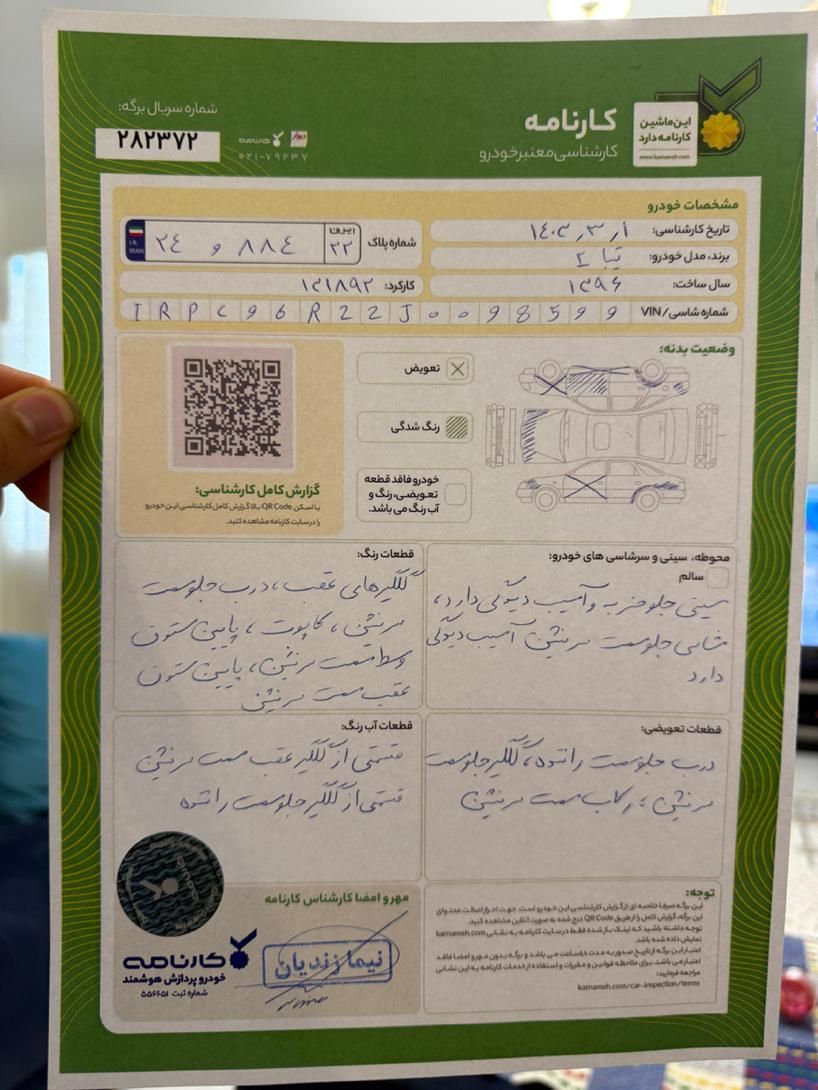 شماره سریال برگه:
۲۸۲۳۷۲
دیوار
کارنامه
۰۲۱-۷۹۲۳۷
کارنامه
کارشناسی معتبر خودرو
این ماشین
کارنامه دارد
www.karnameh.com
مشخصات خودرو
تاریخ کارشناسی: ۱۴۰۳٫۳٫۱
شماره پلاک
ایران
۲۲
۸۸۴ و ۲۴
I.R.
IRAN
برند، مدل خودرو: تیبا ۲
سال ساخت: ۱۳۹۶
کارکرد: ۱۲۱۸۹۲
شماره شاسی/ VIN
I R P C 9 6 R 2 2 J 0 0 9 8 5 9 9
وضعیت بدنه:
تعویض
رنگ شدگی
خودرو فاقد قطعه
تعویضی، رنگ و
آب رنگ می باشد.
گزارش کامل کارشناسی:
با اسکن QR Code بالا گزارش کامل کارشناسی این خودرو
را در سایت کارنامه مشاهده کنید.
محوطه، سینی و سرشاسی های خودرو:
سالم
سینی جلو ضربه و آسیب دیدگی دارد،
شاسی جلو سمت سرنشین آسیب دیدگی
دارد
قطعات رنگ:
گلگیرهای عقب، درب جلو سمت
سرنشین، کاپوت، پایین ستون
وسط سمت سرنشین، پایین ستون
عقب سمت سرنشین
قطعات تعویضی:
درب جلو سمت راننده، گلگیر جلو سمت
سرنشین، رکاب سمت سرنشین
قطعات آب رنگ:
قسمتی از گلگیر عقب سمت سرنشین
قسمتی از گلگیر جلو سمت راننده
توجه:
این برگه صرفا خلاصه ای از گزارش کارشناسی این خودرو است. جهت احراز اصالت محتوای
این برگه، گزارش کامل را از طریق QR Code درج شده به صورت آنلاین مشاهده کنید.
توجه داشته باشید که لینک باز شده فقط در سایت کارنامه به نشانی karnameh.com
نمایش داده شده باشد.
اعتبار این برگه از تاریخ صدور به مدت ۴۸ ساعت می باشد و برگه بدون مهر و امضا فاقد
اعتبار می باشد. برای ملاحظه قوانین و مقررات و استفاده از خدمات کارنامه به این نشانی
مراجعه فرمایید:
karnameh.com/car-inspection/terms
مهر و امضا کارشناس کارنامه
نیما زندیان
کارنامه
خودرو پردازش هوشمند
شماره ثبت ۵۵۶۶۵۱